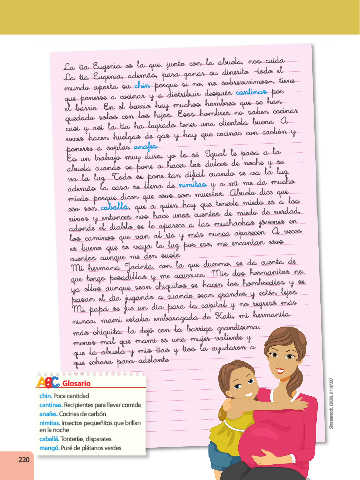 La tía Eugenia es la que, junto con la abuela, nos cuida.
La tía Eugenia, además, para ganar su dinerito -todo el
mundo aporta su chin porque si no, no sobrevivimos-, tiene
que ponerse a cocinar y a distribuir después cantinas por
el barrio. En el barrio hay muchos hombres que se han
quedado solos con los hijos. Esos hombres no saben cocinar
casi y así la tía ha logrado tener una clientela buena. A
veces hacen huelgas de gas y hay que cocinar con carbón y
ponerse a soplar anafes.
Es un trabajo muy duro, yo lo sé. Igual le pasa a la
abuela cuando se pone a hacer los dulces de noche y se
va la luz. Todo se pone tan difícil cuando se va la luz,
además la casa se llena de nimitas y a mí me da mucho
miedo porque dicen que esos son muertos. Abuela dice que
eso son caballá, que a quien hay que tenerle miedo es a los
vivos y entonces nos hace unos cuentos de miedo de verdad,
adonde el diablo se le aparece a las muchachas jóvenes en
los caminos que van al río y más nunca aparecen. A veces
es bueno que se vaya la luz por eso, me encantan esos
cuentos aunque me den susto.
Mi hermana Jacinta, con la que duermo, se da cuenta de
que tengo pesadillas y me acurruca. Mis dos hermanitos, no,
ya ellos aunque sean chiquitos se hacen los hombrecitos y se
pasan el día jugando a cuando sean grandes y estén lejos.
Mi papá se fue un día para la capital y no regresó más
nunca, mami estaba embarazada de Kati, mi hermanita
más chiquita, la dejó con la barriga grandísima,
menos mal que mami es una mujer valiente y
que la abuela y mis tías y tíos la ayudaron a
que echara para adelante.
ABC Glosario
chin. Poca cantidad
cantinas. Recipientes para llevar comida
anafes. Cocinas de carbón
nimitas. Insectos pequeñitos que brillan
en la noche
caballá. Tonterías, disparates
mangú. Puré de plátanos verdes
220